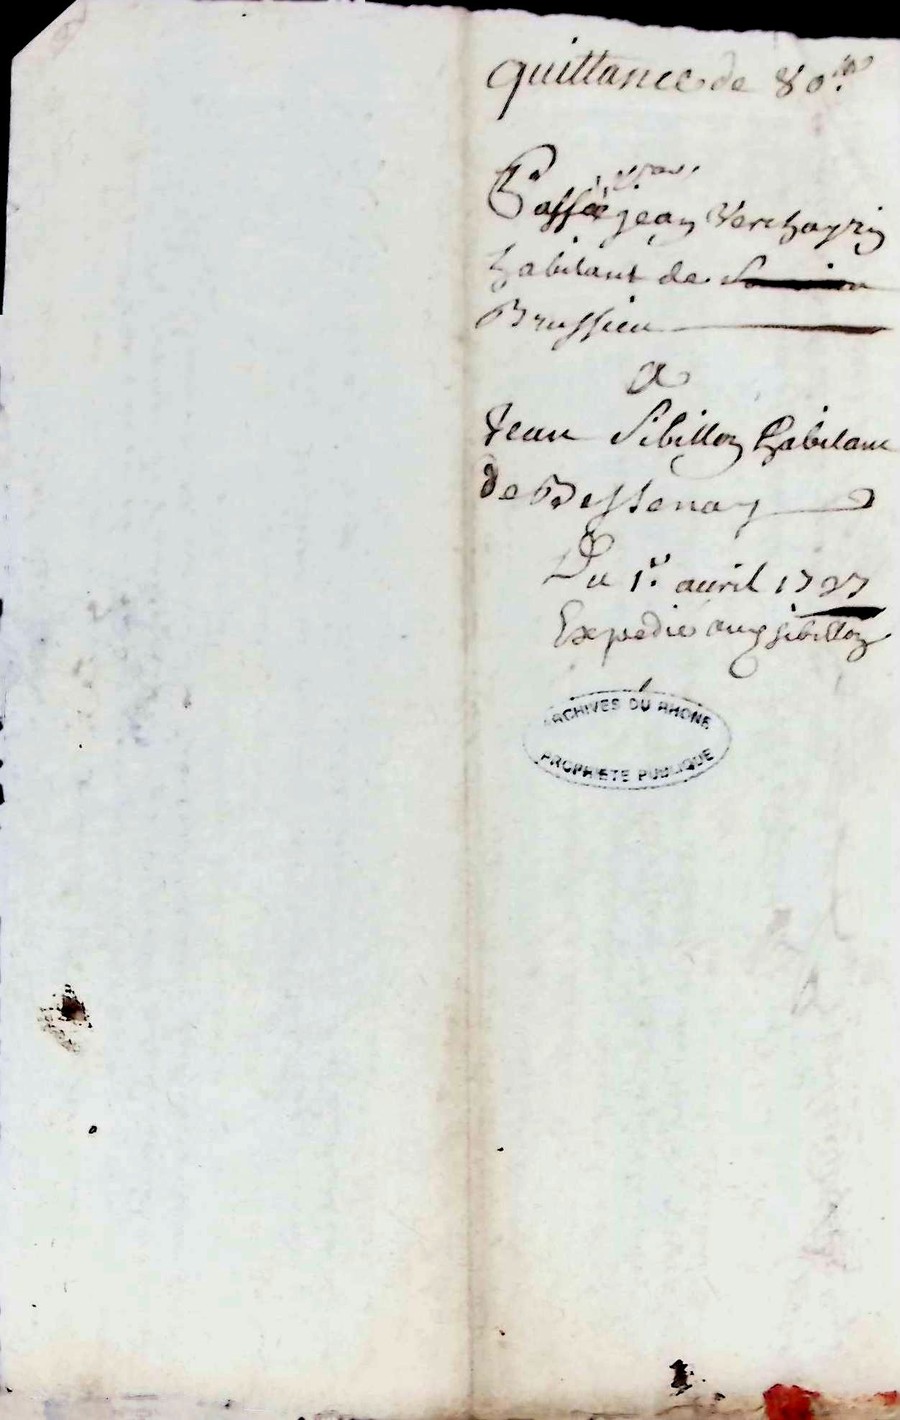 quittance de 80.#
Passée jean Verchayrin
habitant de
Brussieu
a
Jean Sibillon habitant
de Bessenay
Du 1.r auril 1727
Expedié aud sibillon
ARCHIVES DU RHONE
PROPRIETE PUBLIQUE